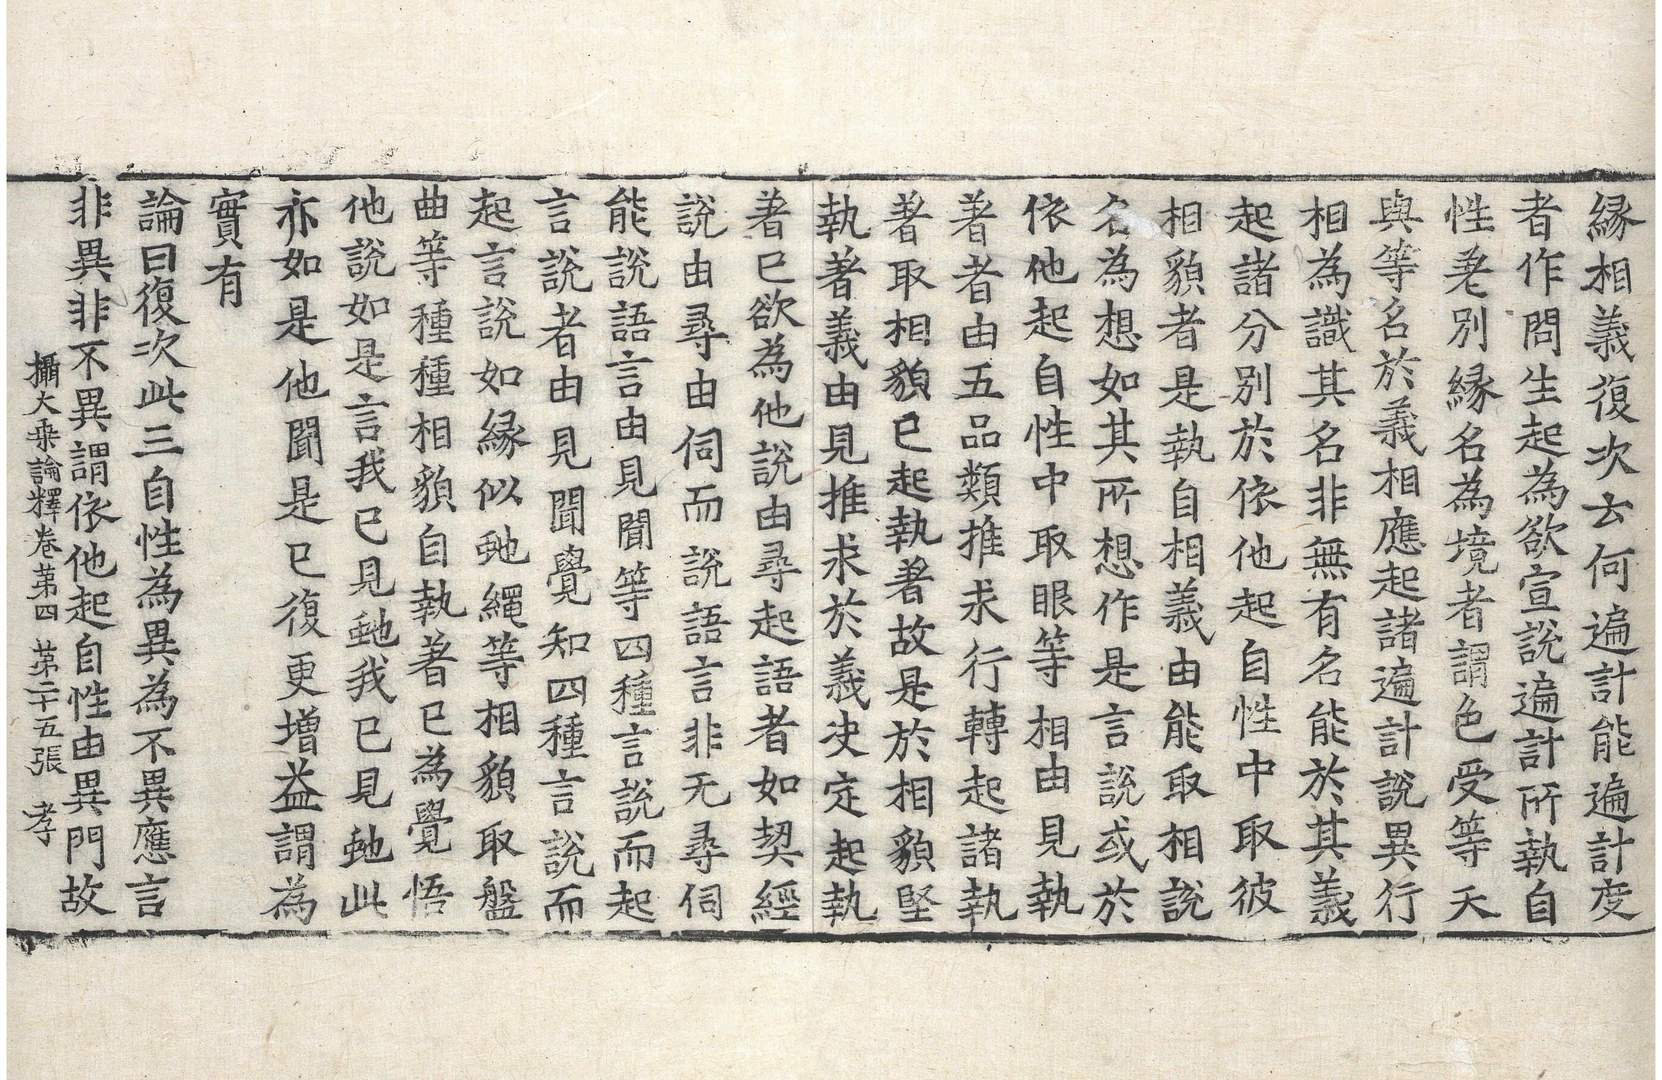 縁相義復次云何遍計能遍計度
者作問生起為欲宣說遍計所執自
性差別縁名為境者謂色受等天
與等名於義相應起諸遍計說異行
相為識其名非無有名能於其義
起諸分別於依他起自性中取彼
相貌者是執自相義由能取相說
名為想如其所想作是言說或於
依他起自性中取眼等相由見執
著者由五品類推求行轉起諸執
著取相貌已起執著故是於相貌堅
執著義由見推求於義决定起執
著已欲為他說由尋起語者如契經
說由尋由伺而說語言非无尋伺
能說語言由見聞等四種言說而起
言說者由見聞覺知四種言說而
起言說如縁似虵繩等相貌取盤
曲等種種相貌自執著已為覺悟
他說如是言我已見虵我已見虵此
亦如是他聞是已復更增益謂為
實有
論曰復次此三自性為異為不異應言
非異非不異謂依他起自性由異門故
攝大乘論釋卷苐四 苐二十五張 孝